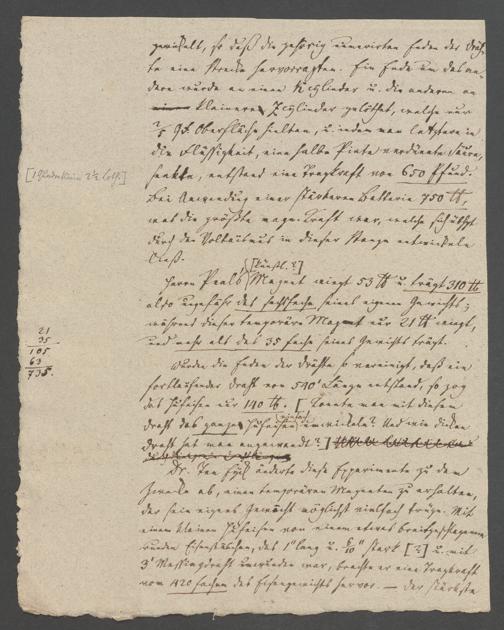 gewickelt, so daß die gehörig numerirten Enden der Dräh-
te eine Strecke hervorragten. Ein Ende um das an-
dere wurde an einen Kcylinder u. die anderen an
einen kleinern Zcylinder gelöthet, welche nur
2/5 QF. Oberfläche hatten, u. indem man letztere in
die Flüssigkeit, eine halbe Pinte verdünnte Säure,
senkte, entstand eine Tragkraft von 650 Pfund.
Bei Anwendung einer stärkeren Batterie 750 ℔,
was die größte magn. Kraft war, welche sich
durch den Voltaismus in dieser Stange entwickeln
ließ.
[künstl.?]
Herrn Peals Magnet wiegt 53 ℔ u. trägt 310 ℔
also ungefähr das sechsfache seines eigenen Gewichts;
während dieser temporäre Magnet nur 21 ℔ wiegt,
und mehr als das 35 fache seines Gewichts trägt.
21
35
105
63
735
Wurden die Enden der Drähte so vereinigt, daß ein
fortlaufender Draht von 540' Länge entstand, so zog
das Hufeisen nur 140 ℔. [Konnte man mit diesem
Draht das ganze Hufeisen umwickeln? Und wie dicken
Draht hat man angewendt?]
Dr. Ten Eyck änderte diese Experimente zu dem
Zwecke ab, einen temporären Magneten zu erhalten,
der sein eigenes Gewicht möglichst vielfach trüge. Mit
einem kleinen Hufeisen von einem etwas breitgeschlagenen
runden Eisenstäbchen, das 1" lang u. 6/10" stark [?] u. mit
3' Messingdraht umwunden war, brachte er eine Tragkraft
vom 420 fachen des Eigengewichts hervor. — Der stärkste